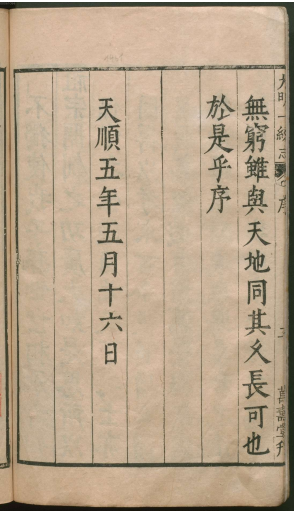 無窮雖與天地同其久長可也
於是乎序
天順五年五月十六日
大明一統志 序
萬壽堂刊